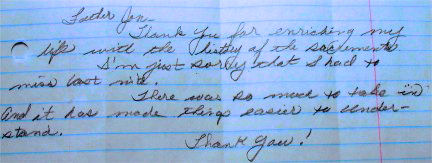 Father Jon-
Thank you for enriching my
life with the history of the sacraments
I'm just sorry that I had to
miss last nite.
There was so much to take in
and it has made things easier to under-
stand.
Thank you!